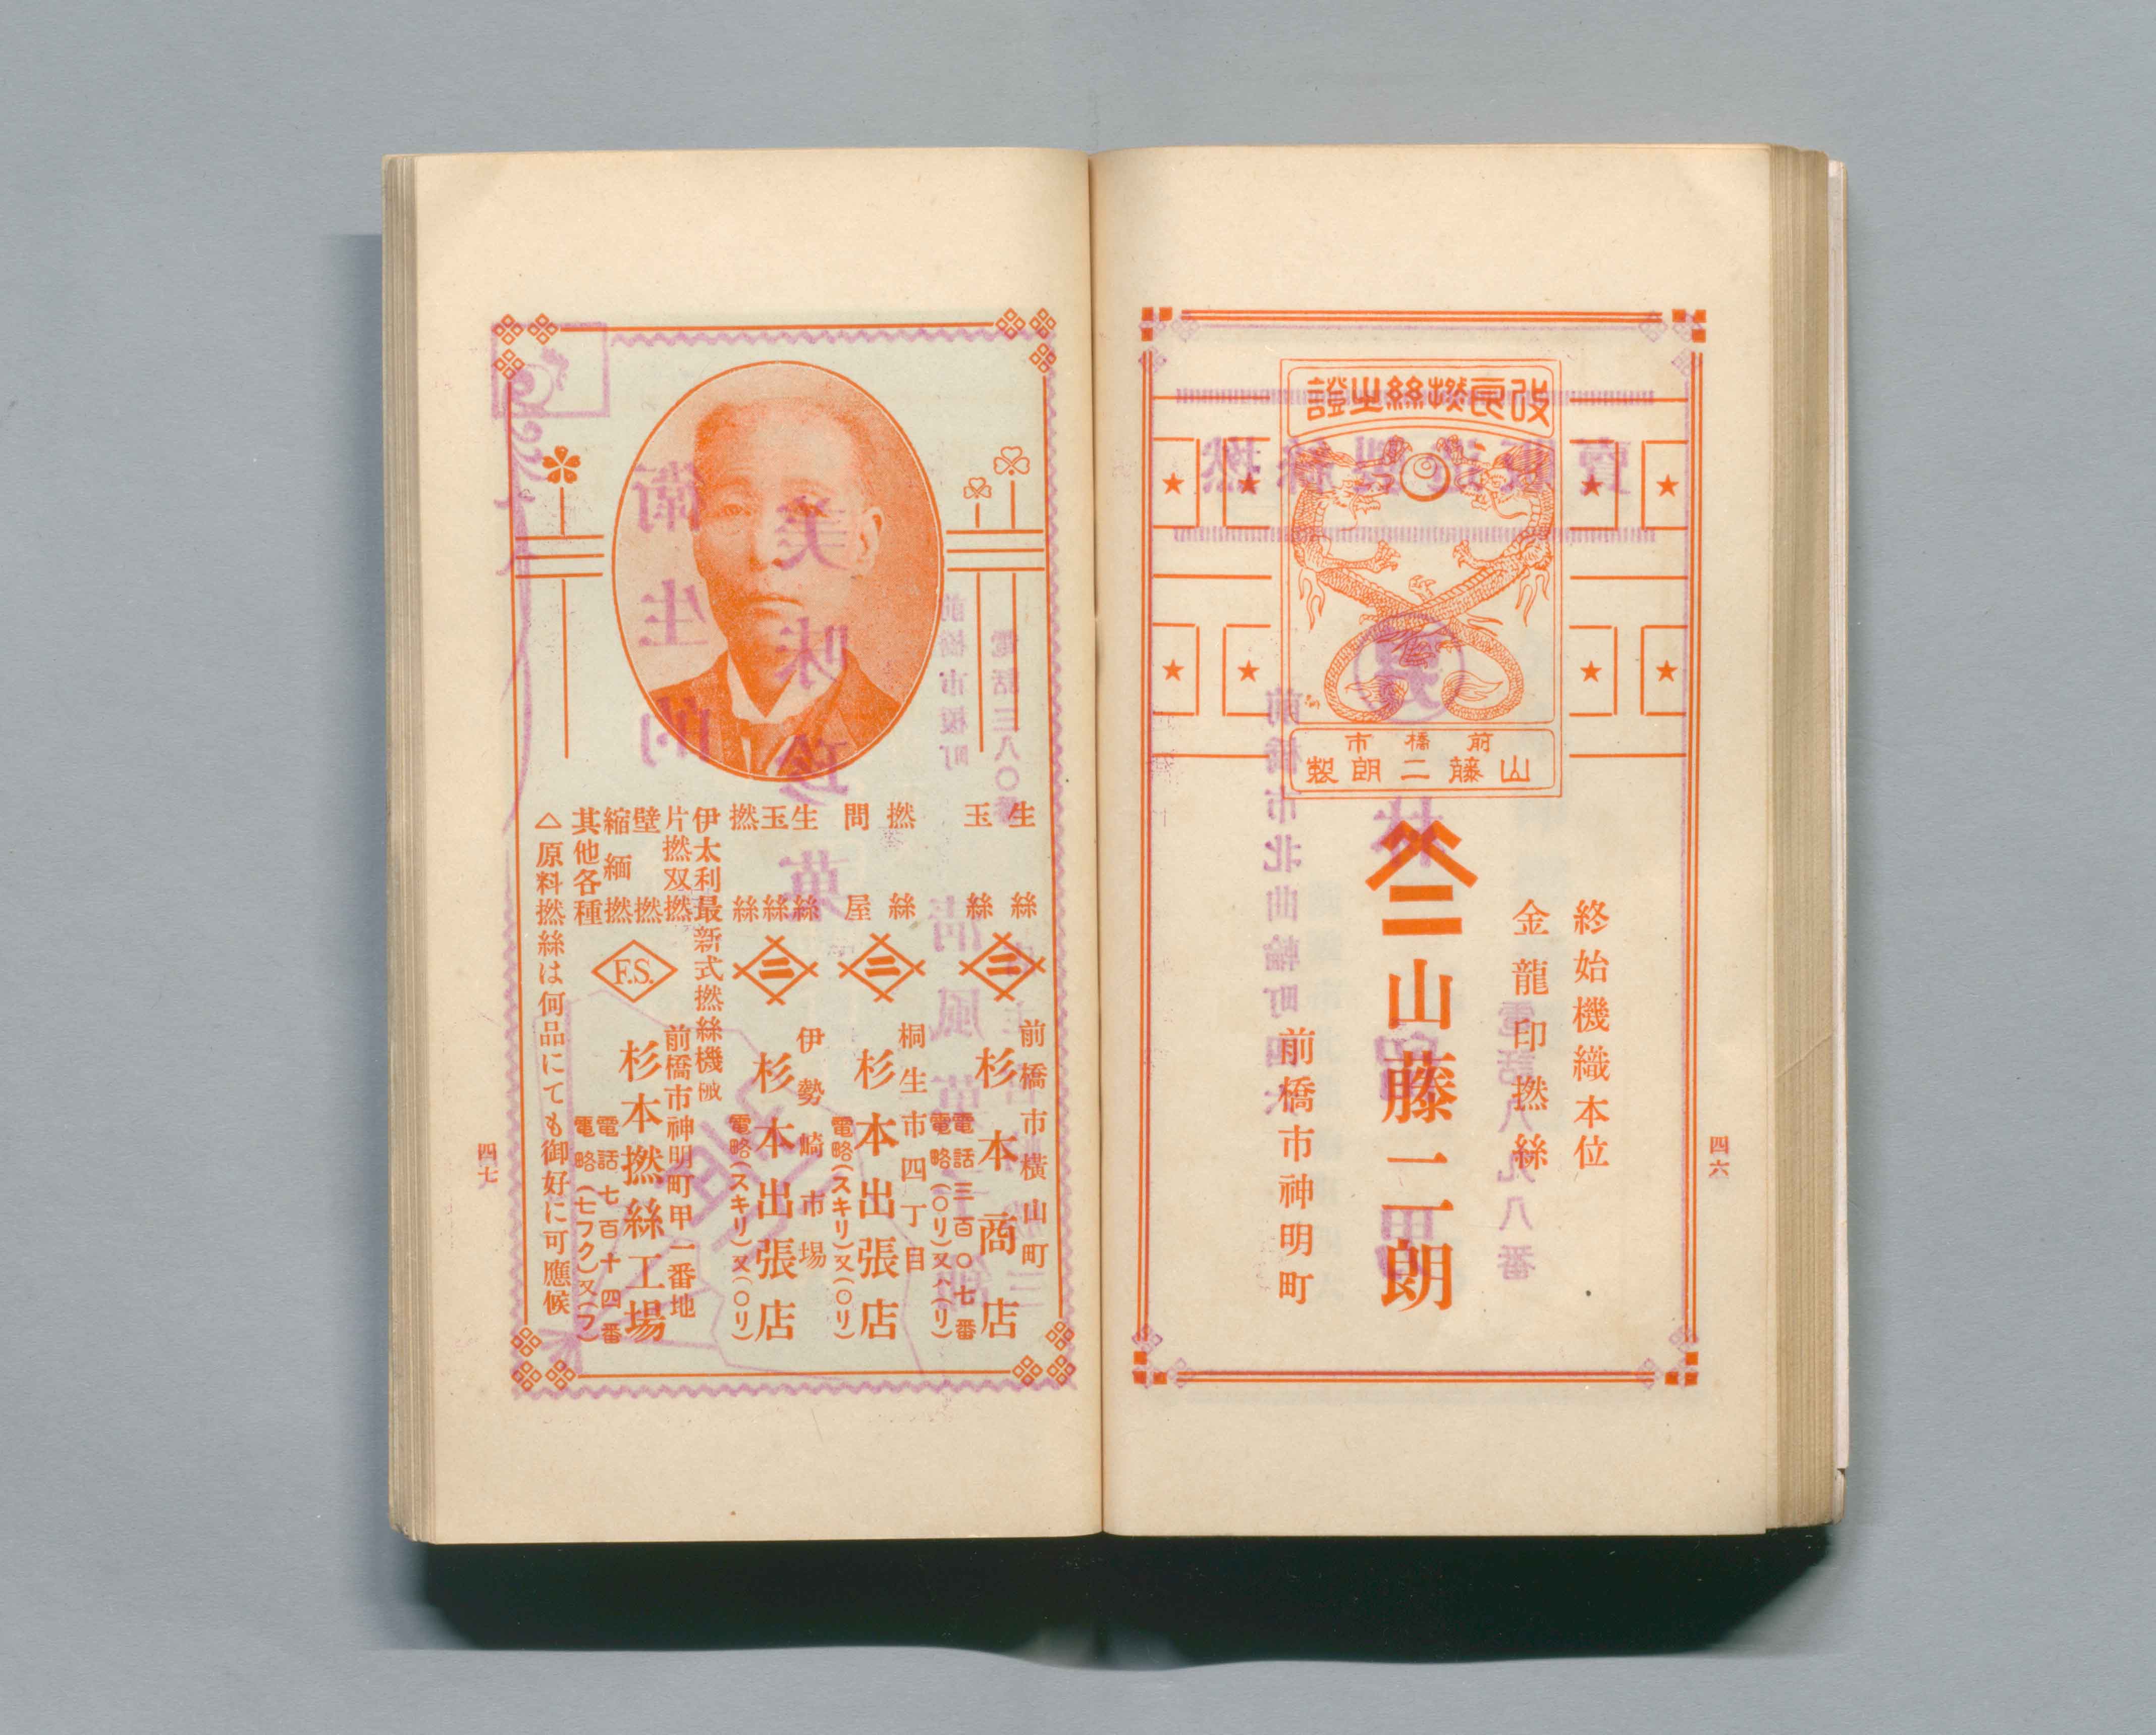 改良撚絲之證
前橋市
山藤二朗製
終始機織本位
金龍印撚絲
山藤二朗
前橋市神明町
四六
生絲
玉絲
前橋市横山町
杉本商店
電話三百〇七番
電略(〇リ)又ハ(リ)
撚絲
問屋
桐生市四丁目
杉本出張店
電略(スキリ)又(〇リ)
生絲
玉絲
撚絲
伊勢崎市場
杉本出張店
電略(スキリ)又(〇リ)
伊太利最新式撚絲機械
片撚双撚
壁撚
縮緬撚
其他各種
F.S.
前橋市神明町甲一番地
杉本撚絲工場
電話七百十四番
電略(七フク)又(フ)
△原料撚絲は何品にても御好に可應候
四七